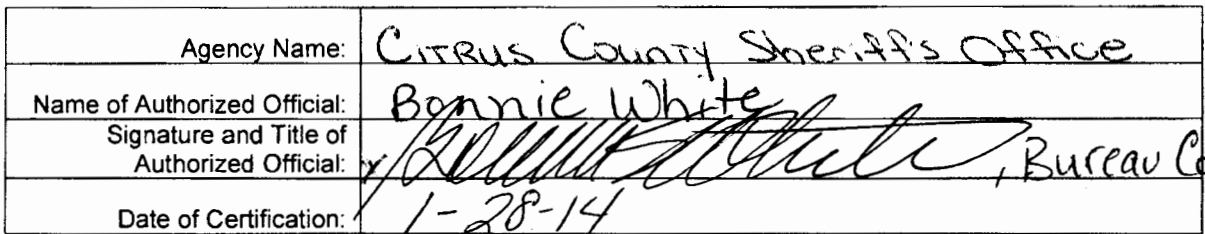 Agency Name: CITRUS COUNTY Sheriff's Office
Name of Authorized Official: Bonnie White
Signature and Title of
Authorized Official: , Bureau
Date of Certification: 1-28-14